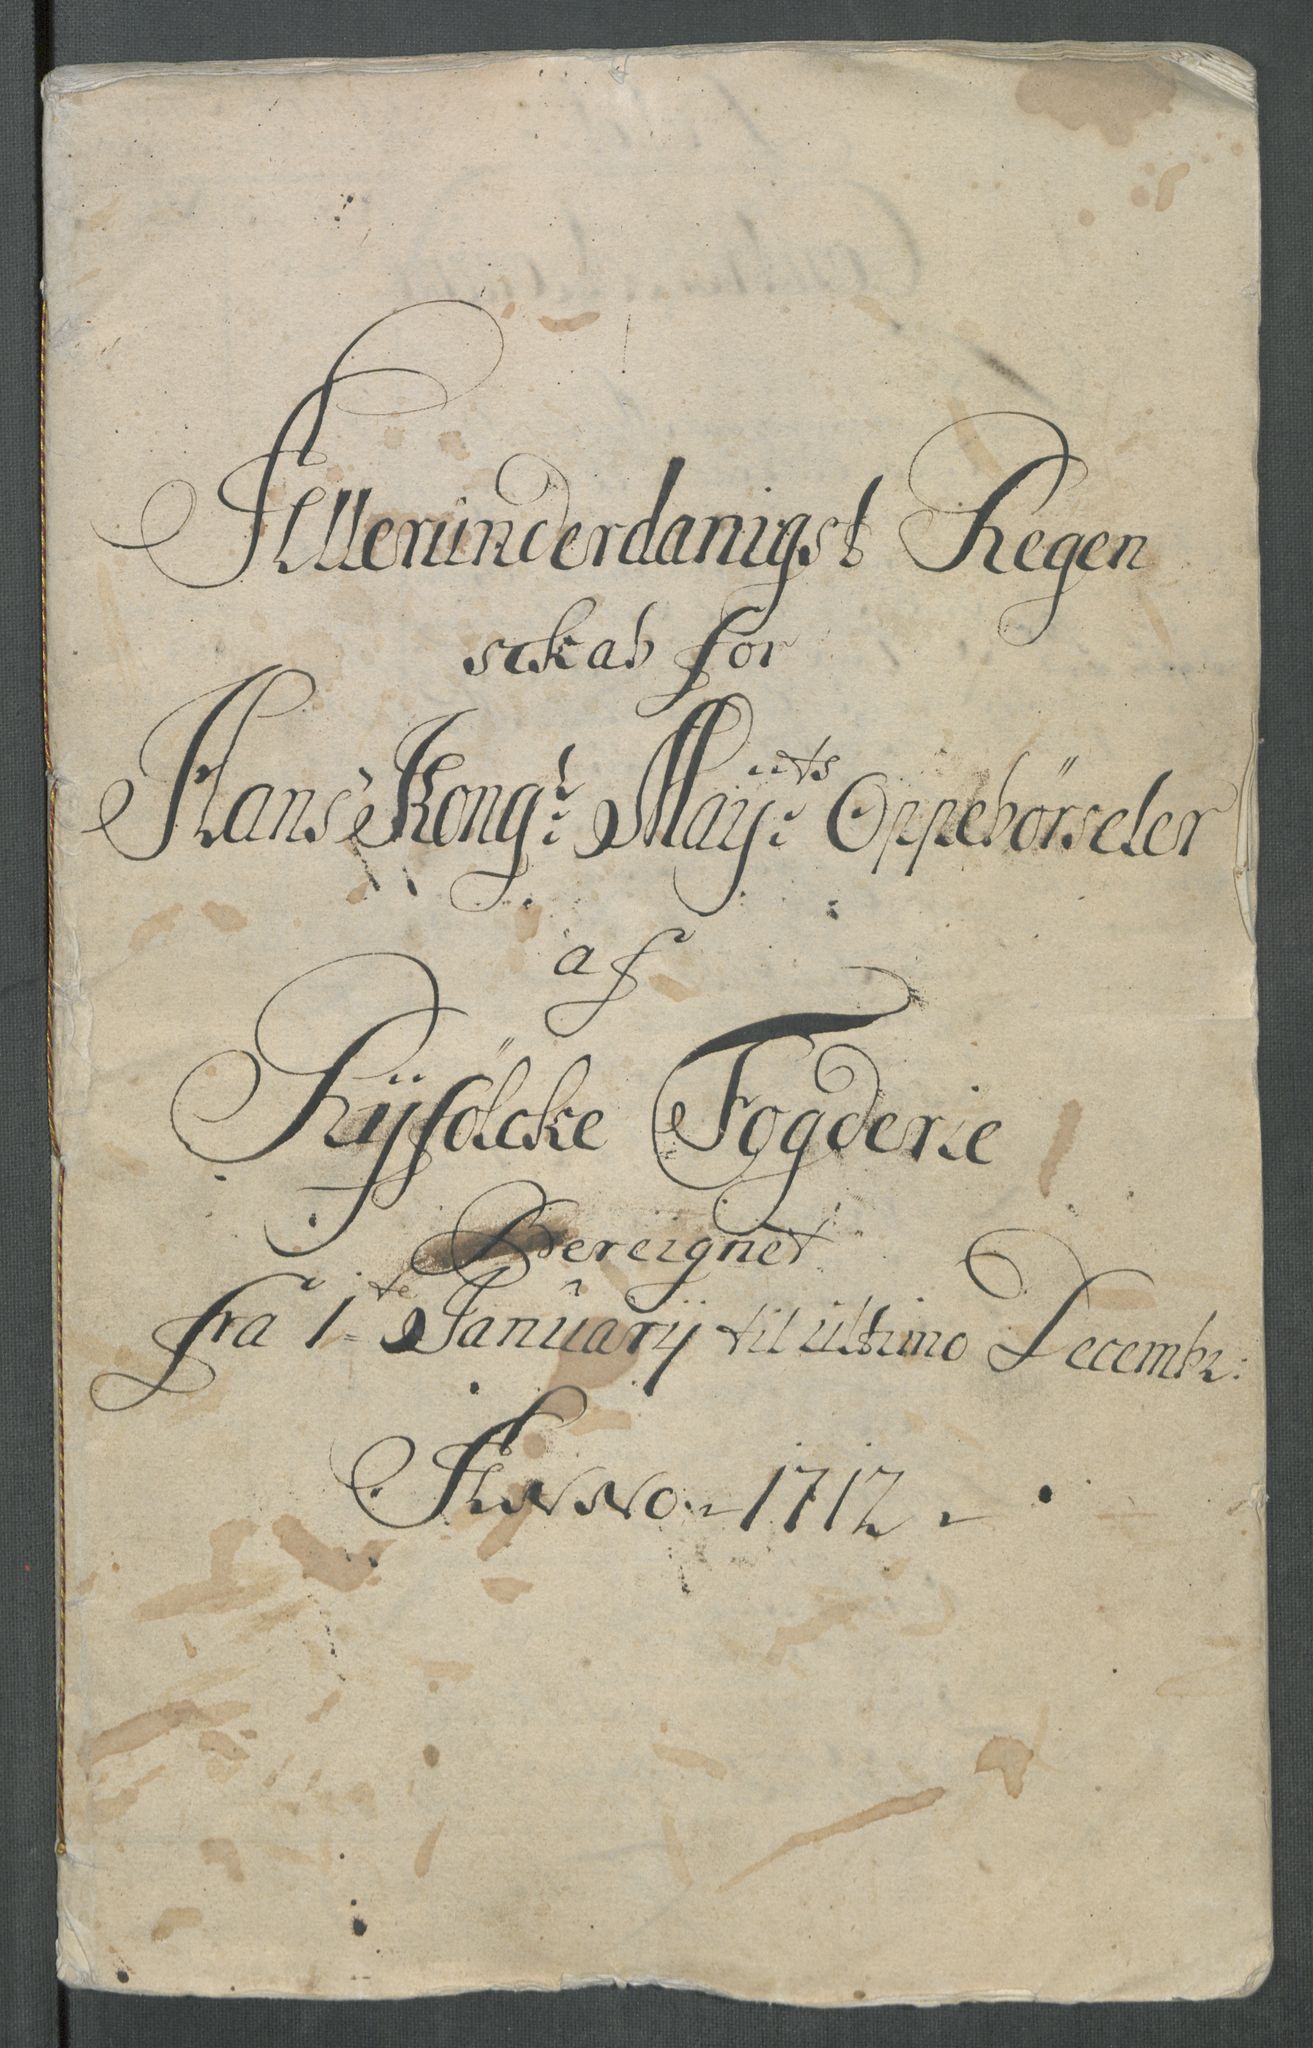 Alleründerdanigst Regen
skab for
Hans Kongl: Mayjts: Oppebörseler
af
Ryfölcke Fogderie
Bereignet
fra 1te Januarij til ultimo Decembr:
Anno 1712